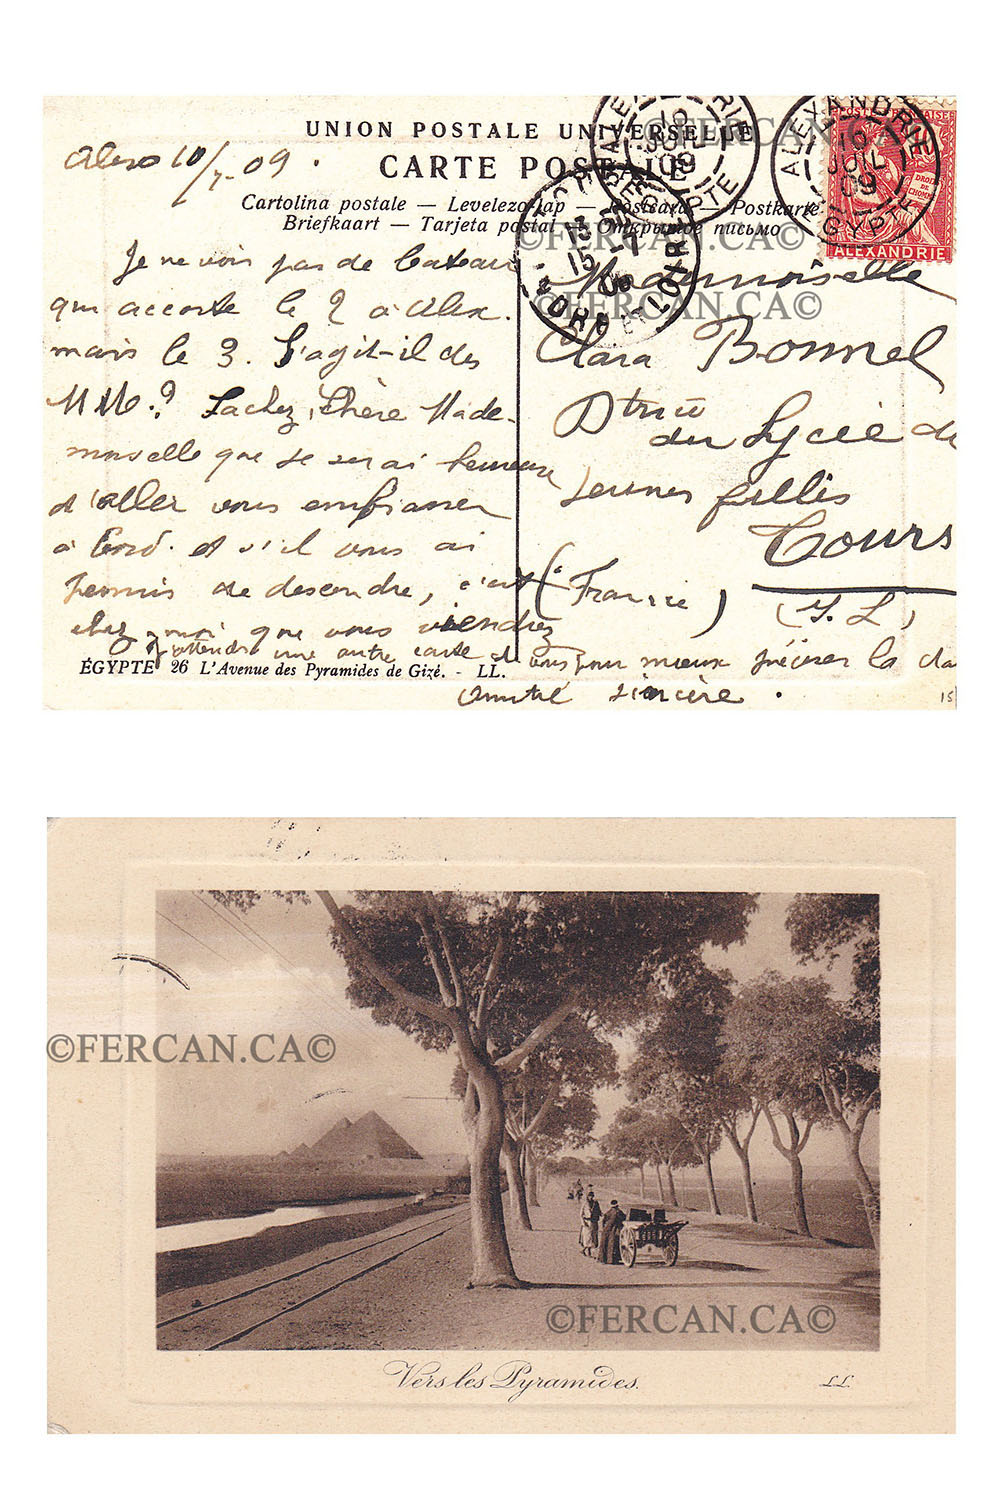 UNION POSTALE UNIVERSELLE
CARTE POSTALE
Cartolina postale — Levelezo-lap — Postcard — Postkarte
Briefkaart — Tarjeta postal — Открытое письмо
Alex 10/7-09.
ALEXANDRIE
10
JUIL
09
EGYPTE
ALEXANDRIE
10
JUIL
09
EGYPTE
POSTE FRANÇAISE
DROITS
DE
L'HOMME
ALEXANDRIE
Je ne vois pas de bateau
qui accoste le 2 à Alex.
mais le 3. S'agit-il des
MM.? Sachez, Chère Made-
moiselle que je serai heureuse
d'aller vous embrasser
à bord. et s'il vous ai
permis de descendre, c'est
chez moi que vous viendrez
J'attends une autre carte de vous pour mieux préciser la da
Amitié sincère.
Mademoiselle
Clara Bonnel
Dtrice
du Lycée de
Jeunes filles
Tours
(France) (I. L.)
ÉGYPTE 26 L'Avenue des Pyramides de Gizé. - LL.
15
©FERCAN.CA©
©FERCAN.CA©
©FERCAN.CA©
©FERCAN.CA©
©FERCAN.CA©
Vers les Pyramides.
LL.